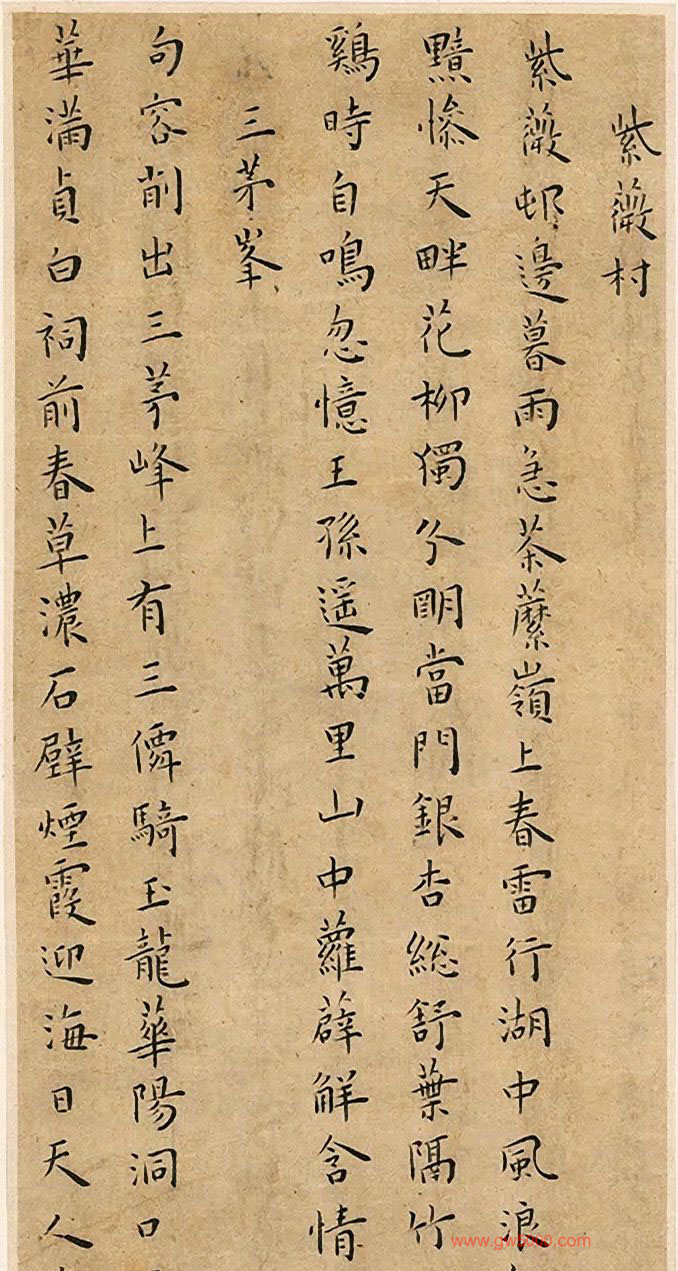 紫薇村
紫薇邨邊暮雨急荼䕷嶺上春雷行湖中風浪
黯慘天畔花柳獨分明當門銀杏總舒葉隔竹
鷄時自鳴忽憶王孫遥萬里山中蘿薜解含情
三茅峯
句容削出三茅峰上有三僊騎玉龍華陽洞口
華滿貞白祠前春草濃石壁煙霞迎海日天人
www.gw5000.com